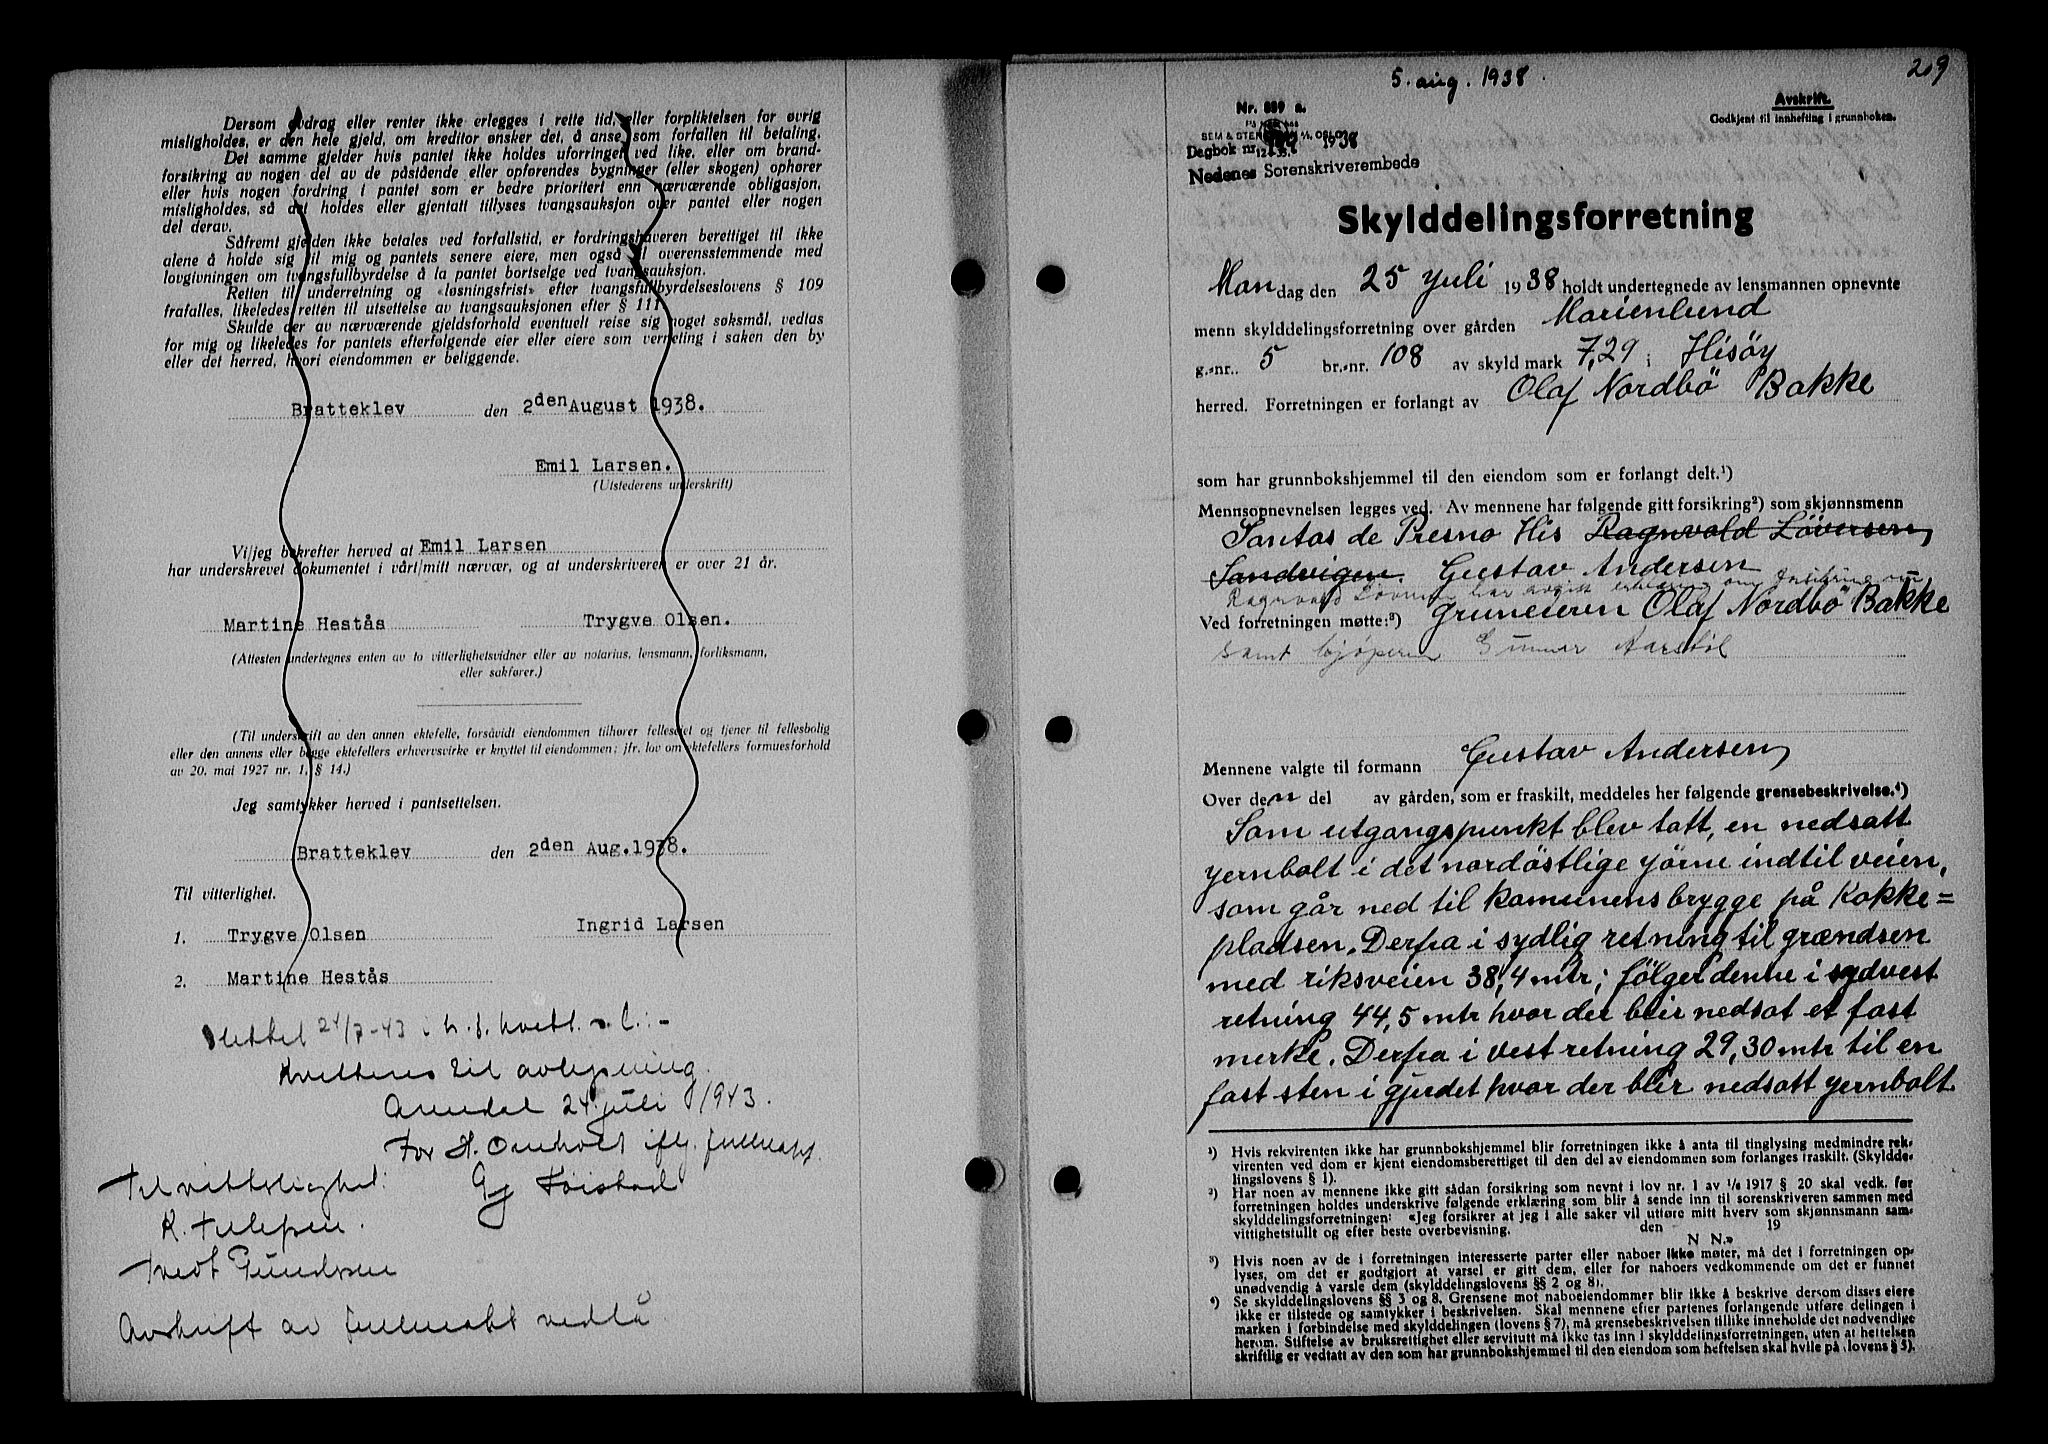 Dersom avdrag eller renter ikke erlegges i rette tid, eller forpliktelsen for øvrig
misligholdes, er den hele gjeld, om kreditor ønsker det, å anse som forfallen til betaling.
Det samme gjelder hvis pantet ikke holdes uforringet ved like, eller om brand-
forsikring av nogen del av de påstående eller opførendes bygninger (eller skogen) ophører
eller hvis nogen fordring i pantet som er bedre prioritert enn nærværende obligasjon,
misligholdes, så det holdes eller gjentatt tillyses tvangsauksjon over pantet eller nogen
del derav.
Såfremt gjelden ikke betales ved forfallstid, er fordringshaveren berettiget til ikke
alene å holde sig til mig og pantets senere eiere, men også til overensstemmende med
lovgivningen om tvangsfullbyrdelse å la pantet bortselge ved tvangsauksjon.
Retten til underretning og «løsningsfrist» efter tvangsfullbyrdelseslovens § 109
frafalles, likeledes retten til utsettelse av tvangsauksjonen efter § 111
Skulde der av nærværende gjeldsforhold eventuelt reise sig noget søksmål, vedtas
for mig og likeledes for pantets efterfølgende eier eller eiere som verneting i saken den by
eller det herred, hvori eiendommen er beliggende.
Bratteklev den 2den August 1938.
Emil Larsen.
(Utstederens underskrift)
Vi/jeg bekrefter herved at Emil Larsen
har underskrevet dokumentet i vårt/mitt nærvær, og at underskriveren er over 21 år.
Martine Hestås Trygve Olsen.
(Attesten undertegnes enten av to vitterlighetsvidner eller av notarius, lensmann, forliksmann,
eller sakfører.)
(Til underskrift av den annen ektefelle, forsåvidt eiendommen tilhører felleseiet og tjener til fellesbolig
eller den annens eller begge ektefellers erhvervsvirke er knyttet til eiendommen; jfr. lov om ektefellers formuesforhold
av 20. mai 1927 nr. 1, § 14.)
Jeg samtykker herved i pantsettelsen.
Bratteklev den 2den Aug. 1938.
Til vitterlighet.
1. Trygve Olsen Ingrid Larsen
2. Martine Hestås
Slettet 24/7-43 i h. t. kvitt.
Kvitteres til avlysning.
Arendal 24 juli 1943.
For H. Omholt iflg. fullmakt.
Til vitterlighet:
Avskrift av fullmakt vedlå
5. aug. 1938.
209
Nr. 889 a.
Dagbok nr. 1938
Nedenes Sorenskriverembede
Avskrift.
Godkjent til innhefting i grunnboken.
Skylddelingsforretning
Mandag den 25 Juli 1938 holdt undertegnede av lensmannen opnevnte
menn skylddelingsforretning over gården Marienlund
g.-nr. 5 br.-nr. 108 av skyld mark 7,29 i Hisøy
herred. Forretningen er forlangt av Olaf Nordbø Bakke
som har grunnbokshjemmel til den eiendom som er forlangt delt.¹)
Mennsopnevnelsen legges ved. Av mennene har følgende gitt forsikring²) som skjønnsmenn
Santos de Presno His Ragnvald Löversen
Sandvigen. Gustav Andersen
Ved forretningen møtte:³) Gruneieren Olaf Nordbø Bakke
samt kjøperen Gunnar Aarstøl
Mennene valgte til formann Gustav Andersen
Over den del av gården, som er fraskilt, meddeles her følgende grensebeskrivelse.⁴)
Som utgangspunkt blev tatt, en nedsatt
yernbolt i det nordöstlige yörne indtil veien,
som går ned til komunens brygge på Kokke=
pladsen. Derfra i sydlig retning til grændsen
med riksveien 38,4 mtr; fölger denne i sydvest
retning 44,5 mtr hvor der blir nedsat et fast
merke. Derfra i vest retning 29,30 mtr til en
fast sten i gjerdet hvor der blir nedsatt yernbolt
¹) Hvis rekvirenten ikke har grunnbokshjemmel blir forretningen ikke å anta til tinglysing medmindre rek-
virenten ved dom er kjent eiendomsberettiget til den del av eiendommen som forlanges fraskilt. (Skyldde-
lingslovens § 1).
²) Har noen av mennene ikke gitt sådan forsikring som nevnt i lov nr. 1 av 1/6 1917 § 20 skal vedk. før
forretningen holdes underskrive følgende erklæring som blir å sende inn til sorenskriveren sammen med
skylddelingsforretningen: «Jeg forsikrer at jeg i alle saker vil utføre mitt hverv som skjønnsmann sam-
vittighetsfullt og efter beste overbevisning. den 19
N N.»
³) Hvis noen av de i forretningen interesserte parter eller naboer ikke møter, må det i forretningen op-
lyses, om det er godtgjort at varsel er gitt dem, eller for naboers vedkommende om det er funnet
unødvendig å varsle dem (skylddelingslovens §§ 2 og 8).
⁴) Se skylddelingslovens §§ 3 og 8. Grensene mot naboeiendommer blir ikke å beskrive dersom disses eiere
ikke er tilstede og samtykker i beskrivelsen. Skal mennene efter partenes forlangende utføre delingen i
marken i forbindelse med skylddelingen (lovens § 7), må grensebeskrivelsen tillike inneholde det nødvendige
herom. Stiftelse av bruksrettighet eller servitutt må ikke tas inn i skylddelingsforretningen, uten at heftelsen
skriftlig er vedtatt av den som har grunnbokshjemmel til den eiendom som heftelsen skal hvile på (lovens § 5).